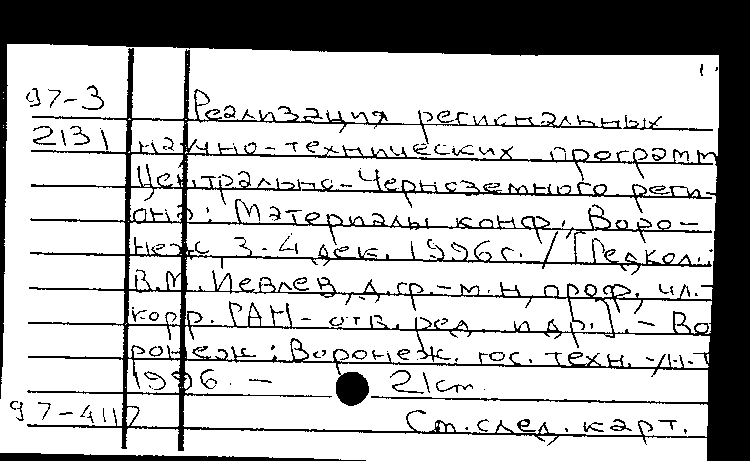 97-3 Реализация региональных
2131 научно-технических программ
Центрально-Черноземного реги-
она: Материалы конф., Воро-
неж, 3-4 дек. 1996г. / [Редкол.:
В.М. Иевлев, д.ф.-м.н, проф., чл.-
корр. РАН - отв. ред. и др.]. - Во
ронеж: Воронеж. гос. техн. ун-т
1996. - 21cm.
97-4117 См. след. карт.